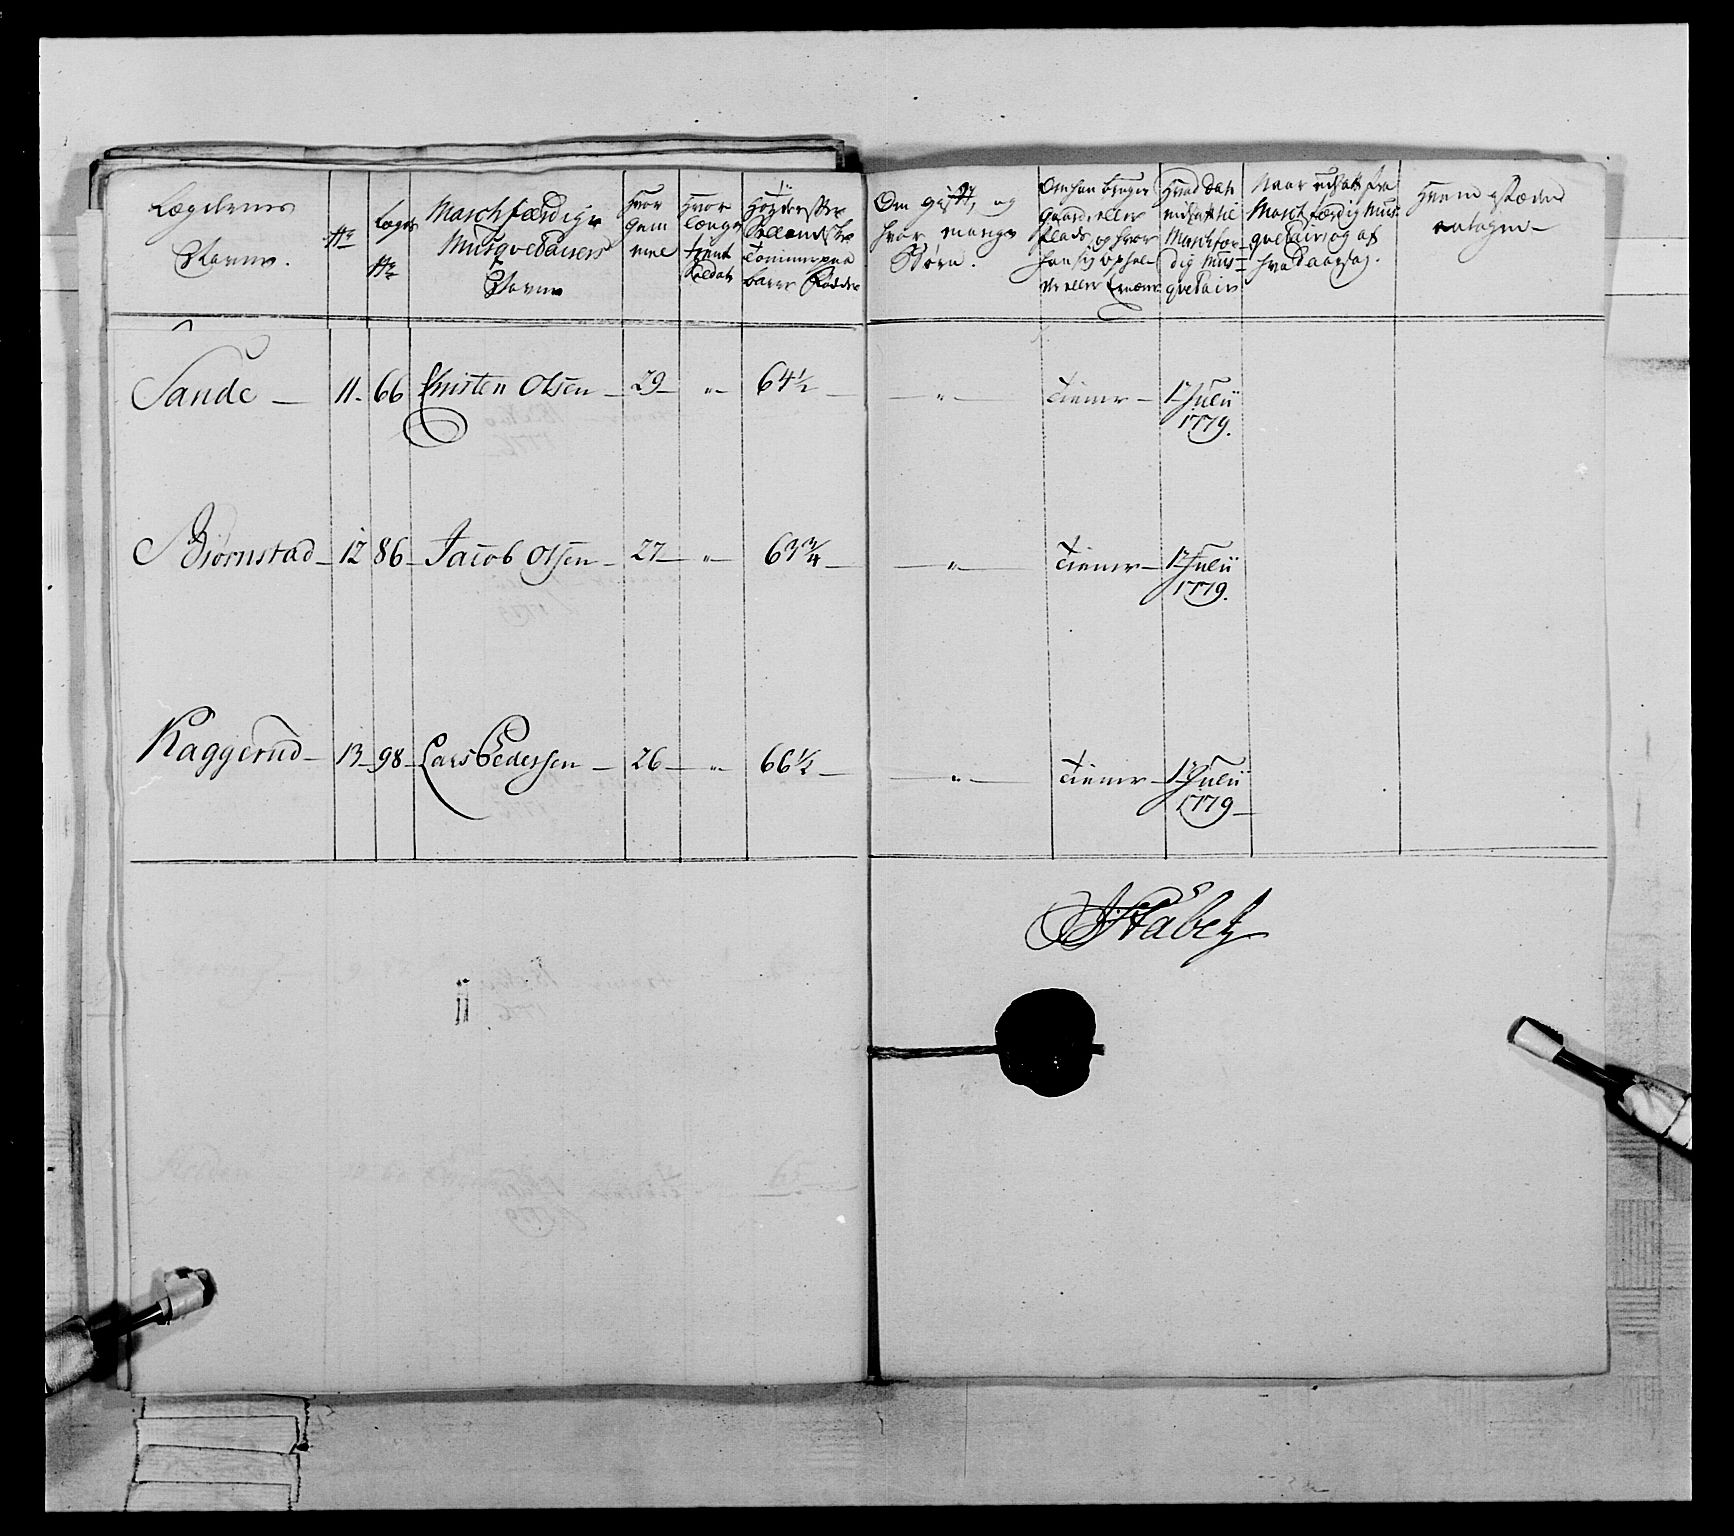 Lægdernes
Navne.
No
Lægs
No
Maschfærdige
Musqvetaiers
Navne
Hvor
gam
mel
Hvor
længe
tient
Soldat
Høyde efter
Sællandske
Tommer paa
bare Fødder
Om gift, og
hvor mange
Børn.
Om han bruger
Gaard eller
Plads, og hvor
han sig ophol-
der eller tiener
Hvad Dato
indsatt til
Maschfær-
dig Mus-
qvetair
Naar udsatt fra
Maschfærdig Mus-
qvetair, og af
hvad aarsag.
Hvem i stæden
antagen
Sande — 11. 66 Christen Olsen — 29 — „ — 64½ — „ — Tiener — 1 Julii
1779.
Biørnstad — 12 86 — Jacob Olsen — 27 — „ — 63¾ — „ — Tiener — 1 Julii
1779.
Kaggerud — 13 — 98 — Lars Pedersen — 26 — „ — 66½ — „ — Tiener — 1 Julii
1779 —
Stabel